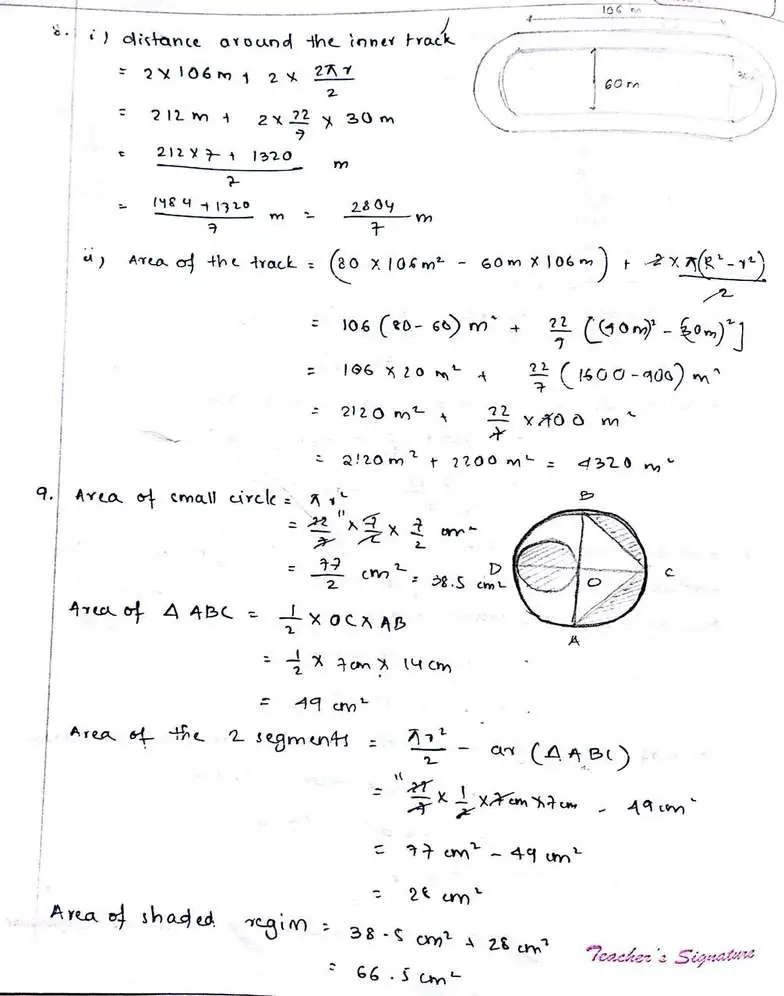 106 m
8. i) distance around the inner track
= 2 × 106 m + 2 × 2πr/2
60 m
= 212 m + 2 × 22/7 × 30 m
= (212 × 7 + 1320)/7 m
= (1484 + 1320)/7 m = 2804/7 m
ii) Area of the track = (80 × 106 m² - 60m × 106 m) + 2 × π(R² - r²)/2
= 106 (80 - 60) m² + 22/7 [(40m)² - (30m)²]
= 106 × 20 m² + 22/7 (1600 - 900) m²
= 2120 m² + 22/7 × 700 m²
= 2120 m² + 2200 m² = 4320 m²
9. Area of small circle = πr²
B
= 22/7 11 × 7/2 × 7/2 cm²
= 77/2 cm² = 38.5 cm²
D
O
C
Area of △ ABC = 1/2 × OC × AB
A
= 1/2 × 7cm × 14cm
= 49 cm²
Area of the 2 segments = πr²/2 - ar (△ABC)
= 11 22/7 × 1/2 × 7cm × 7cm - 49 cm²
= 77 cm² - 49 cm²
= 28 cm²
Area of shaded regin = 38.5 cm² + 28 cm²
= 66.5 cm²
Teacher's Signature